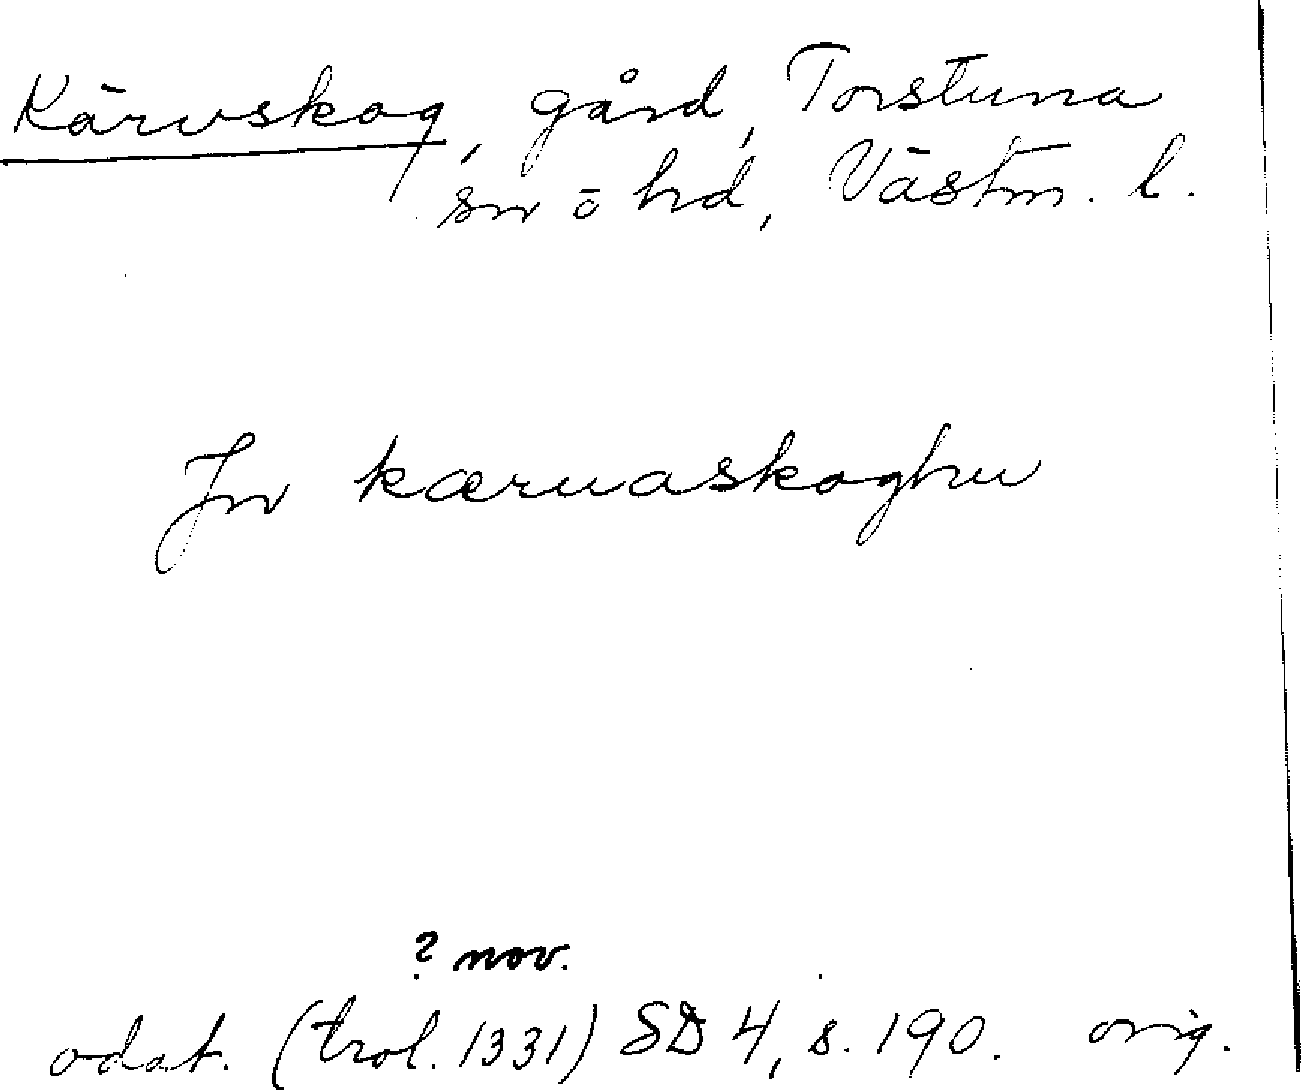 Kärvskog, gård, Torstuna
sn o hd, Västm. l.
Jn kæruaskoghu
? nov.
odat. (trol. 1331) SD 4, s. 190. orig.